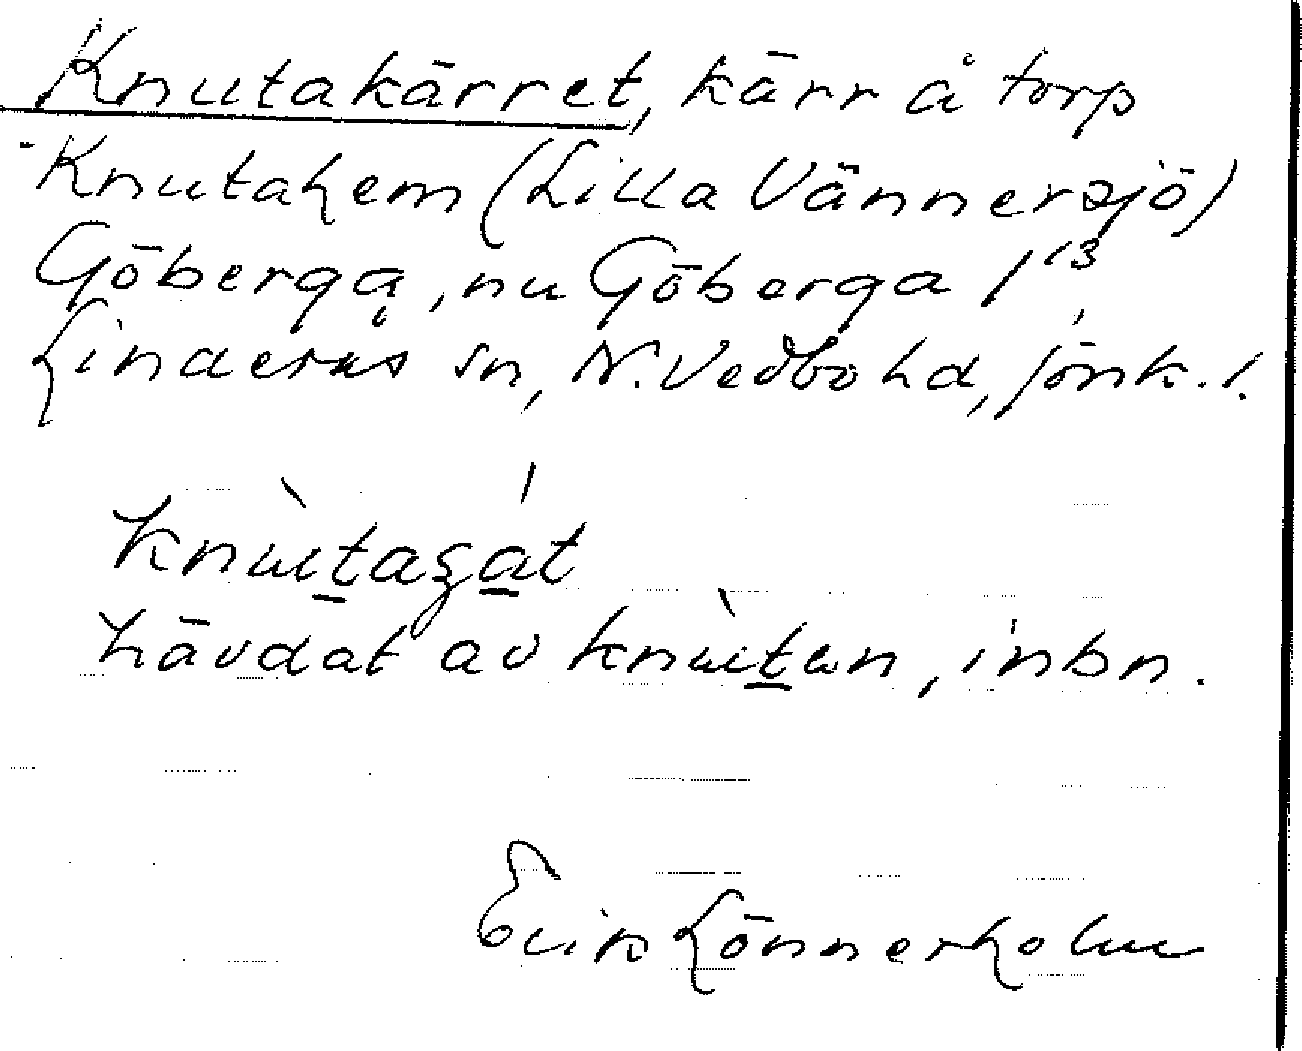 Knutakärret, kärr å torp
Knutahem (Lilla Vännersjö)
Göberga, nu Göberga 1¹³
Linderås sn, N. Vedbo hd, Jönk. l.
hävdat av knùtan, inbn.
Erik Lönnerholm